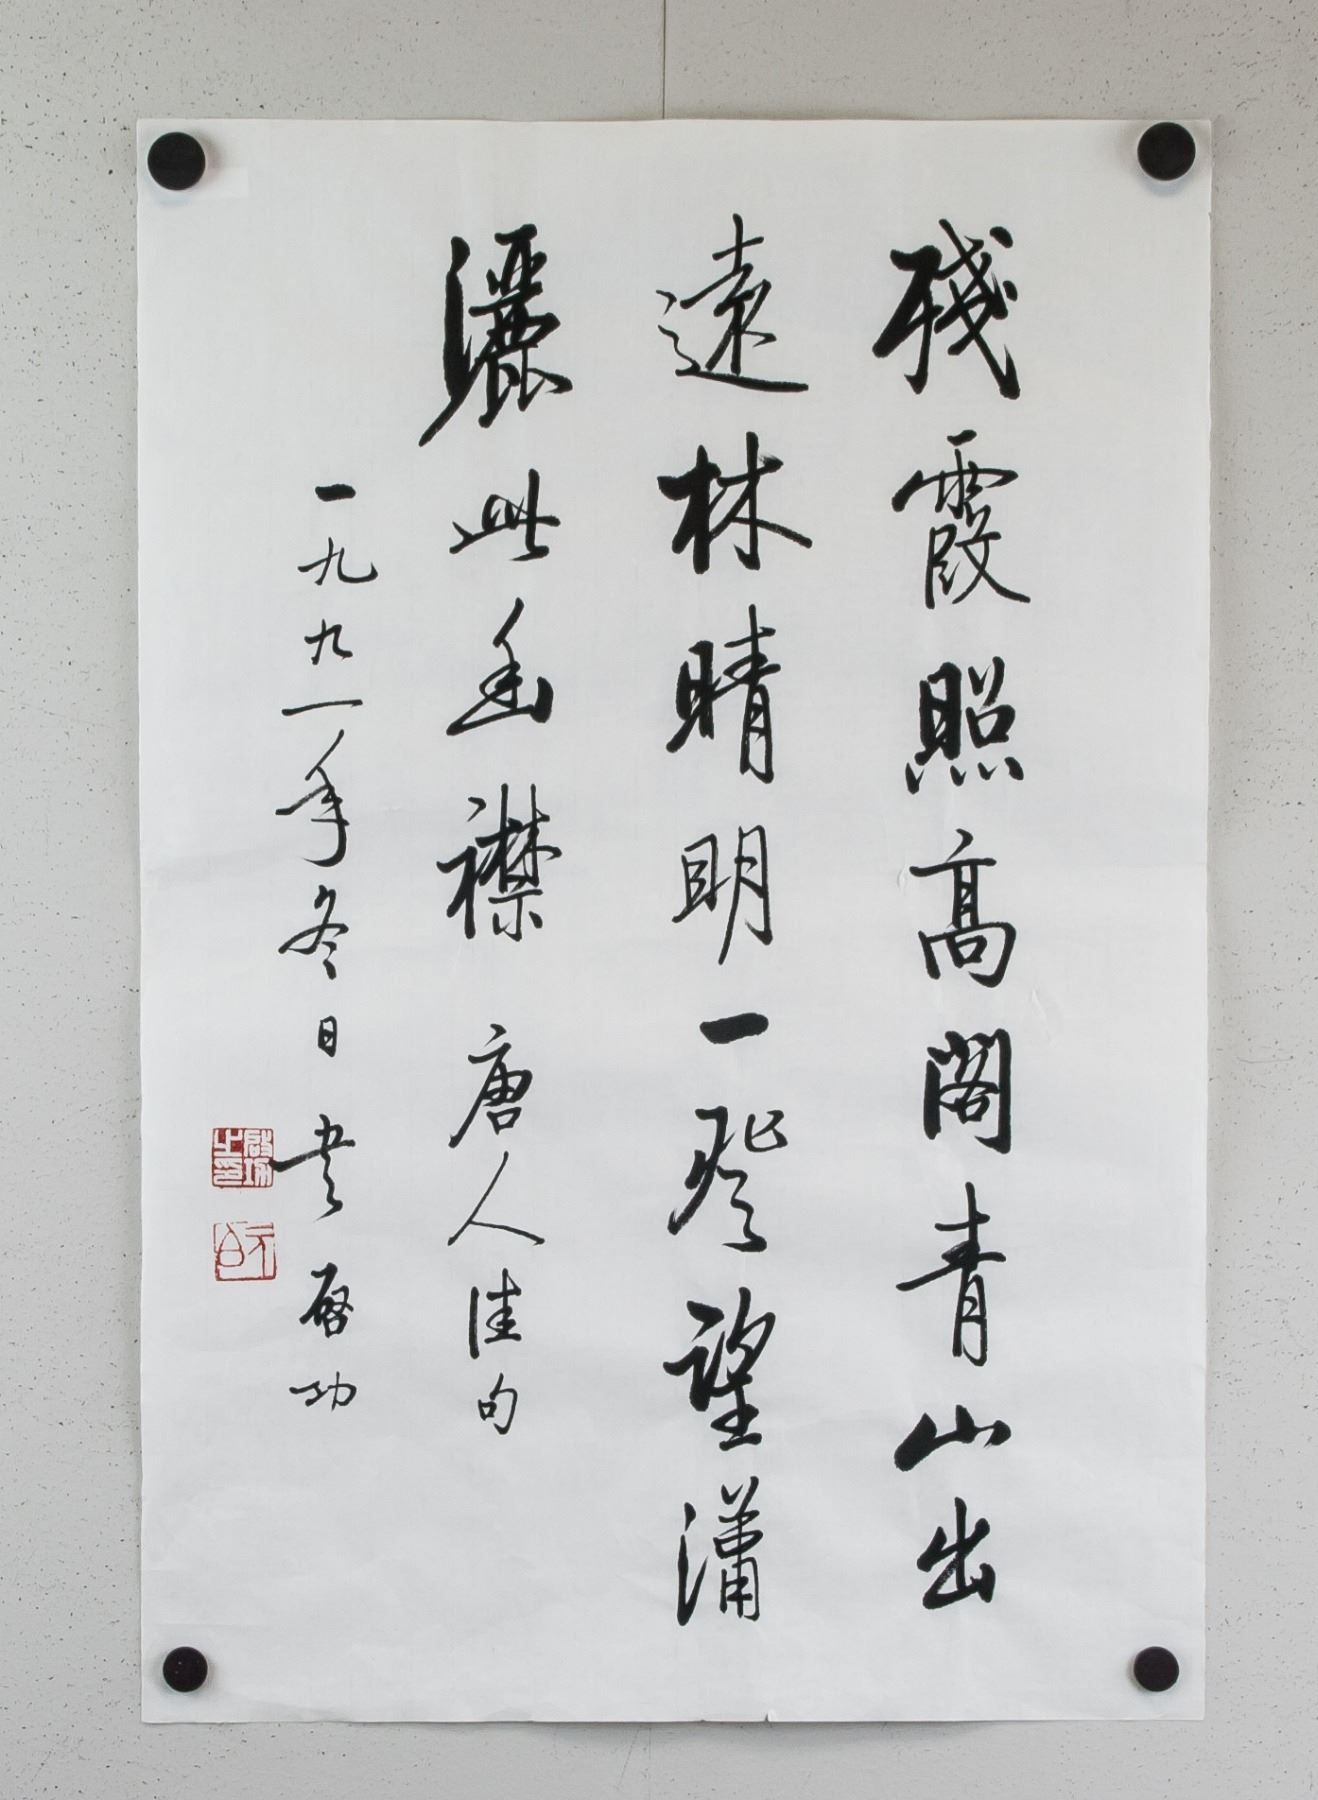 殘霞照高閣青山出
遠林晴明一登望瀟
灑此幽襟 唐人佳句
一九九一年冬日書 啟功
啟功之印
元白